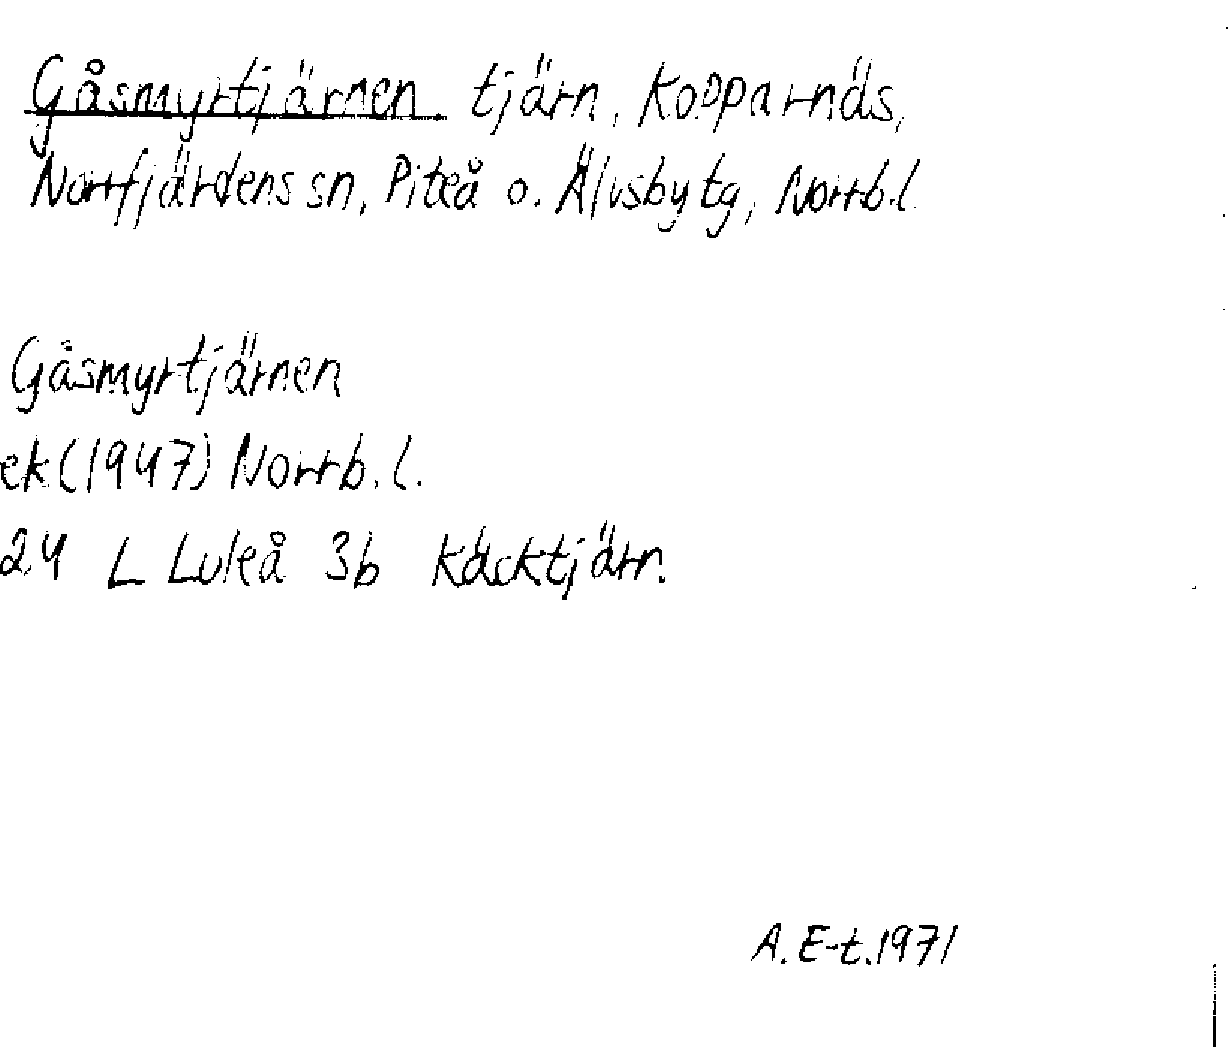 Gåsmyrtjärnen. tjärn, Kopparnäs,
Norrfjärdens sn, Piteå o. Älvsby tg, Norrb.l.
Gåsmyrtjärnen
ek (1947) Norrb. l.
24 L Luleå 3b Käcktjärn.
A. E-t. 1971